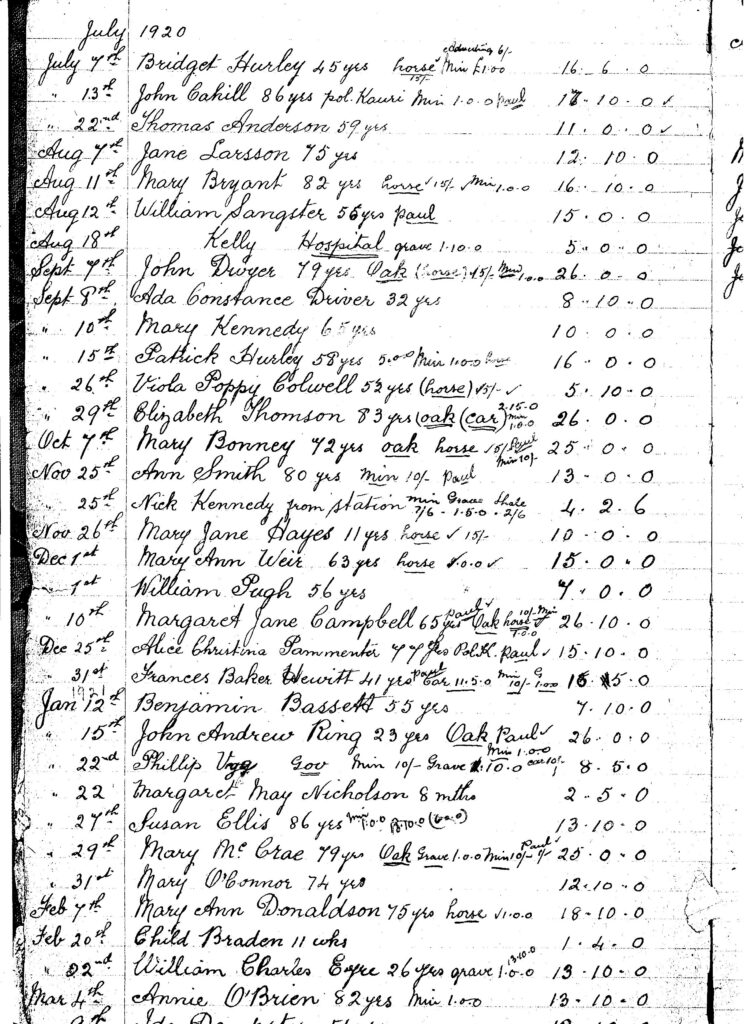 July 1920
July 7th Bridget Hurley 45 yrs horse 15/- Min £1.0.0 6/- 16 . 6 . 0
" 13th John Cahill 86 yrs pol. Kauri Min 1.0.0 paul 17 . 10 . 0 ✓
" 22nd Thomas Anderson 59 yrs 11 . 0 . 0 ✓
Aug 7th Jane Larsson 75 yrs 12 . 10 . 0
Aug 11th Mary Bryant 82 yrs horse ✓ 15/- Min 1.0.0 16 . 10 . 0
Aug 12th William Sangster 56 yrs paul 15 . 0 . 0
Aug 18th Kelly Hospital grave 1.10.0 5 . 0 . 0
Sept 7th John Dwyer 79 yrs Oak (horse) ✓ 15/- Min 1.0.0 26 . 0 . 0
Sept 8th Ada Constance Driver 32 yrs 8 . 10 . 0
" 10th Mary Kennedy 65 yrs 10 . 0 . 0
" 15th Patrick Hurley 58 yrs 5.00 Min 1.0.0 horse 16 . 0 . 0
" 26th Viola Poppy Colwell 5½ yrs (horse) ✓ 5/- ✓ 5 . 10 . 0
" 29th Elizabeth Thomson 83 yrs (oak (car) 2.15.0 Min 1.0.0 26 . 0 . 0
Oct 7th Mary Bonney 72 yrs oak horse ✓ 15/- Paul Min 10/- 25 . 0 . 0
Nov 25th Ann Smith 80 yrs Min 10/- Paul 13 . 0 . 0
" 25th Nick Kennedy from station Min 7/6 - Grave 1.5.0 - 2/6 4 . 2 . 6
Nov 26th Mary Jane Hayes 11 yrs horse ✓ 15/- 10 . 0 . 0
Dec 1st Mary Ann Weir 63 yrs horse 15 . 0 . 0
" 1st William Pugh 56 yrs 7 . 0 . 0
" 10th Margaret Jane Campbell 65 yrs paul ✓ Oak horse ✓ 1.0.0 10/- Min 26 . 10 . 0
Dec 25th Alice Christina Pammenter 77 yrs Pol. K. Paul ✓ 15 . 10 . 0
" 31st Frances Baker Hewitt 41 yrs paul Car 11.5.0 Min 10/- G 1.0.0 5 . 0
1921
Jan 12th Benjamin Bassett 55 yrs 7 . 10 . 0
" 15th John Andrew Ring 23 yrs Oak Paul ✓ 26 . 0 . 0
Min 1.0.0
" 22nd Phillip Gov Min 10/- Grave 1.10.0 car 10/- 8 . 5 . 0
" 22 Margaret May Nicholson 8 mths 2 . 5 . 0
" 27th Susan Ellis 86 yrs Min 1.0.0 13 . 10 . 0
" 29th Mary McCrae 79 yrs Oak Grave 1.0.0 Min 10/- Paul ✓ 25 . 0 . 0
" 31st Mary O'Connor 74 yrs 12 . 10 . 0
Feb 7th Mary Ann Donaldson 75 yrs horse ✓ 1.0.0 18 . 10 . 0
Feb 20th Child Braden 11 wks 1 . 4 . 0
" 22nd William Charles Eyre 26 yrs grave 1.0.0 13.10.0 13 . 10 . 0
Mar 4th Annie O'Brien 82 yrs Min 1.0.0 13 . 10 . 0